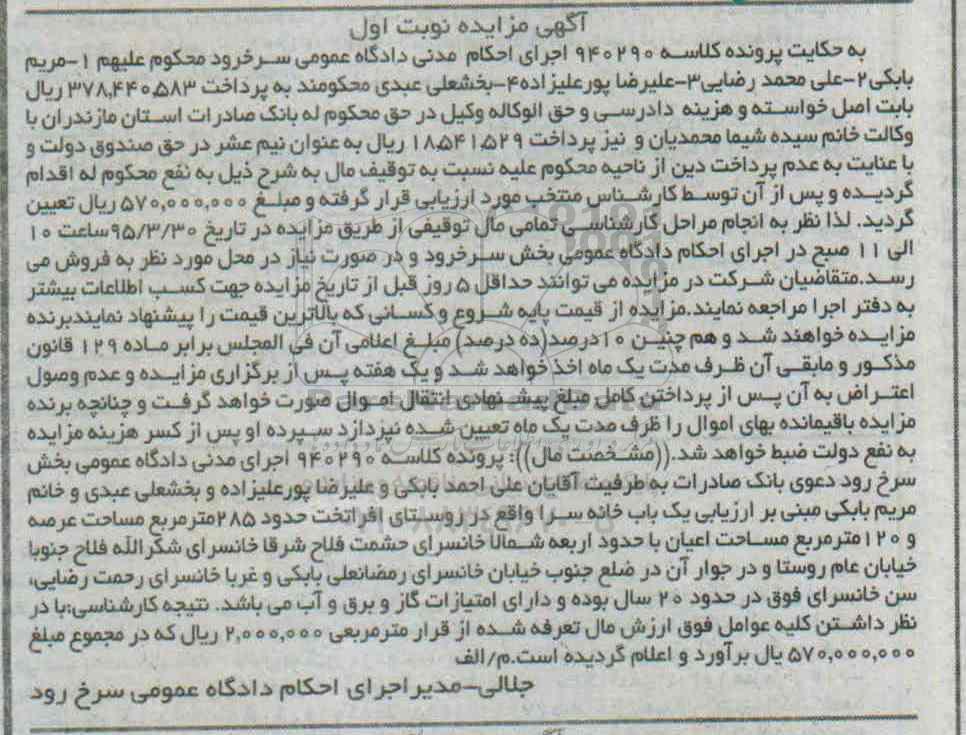 آگهی مزایده نوبت اول
به حکایت پرونده کلاسه ۹۴۰۲۹۰ اجرای احکام مدنی دادگاه عمومی سرخرود محکوم علیهم ۱-مریم
بابکی۲-علی محمد رضایی۳-علیرضا پورعلیزاده۴-بخشعلی عبدی محکومند به پرداخت ۳۷۸,۴۴۰,۵۸۳ ریال
بابت اصل خواسته و هزینه دادرسی و حق الوکاله وکیل در حق محکوم له بانک صادرات استان مازندران با
وکالت خانم سیده شیما محمدیان و نیز پرداخت ۱۸,۵۴۱,۵۲۹ ریال به عنوان نیم عشر در حق صندوق دولت و
با عنایت به عدم پرداخت دین از ناحیه محکوم علیه نسبت به توقیف مال به شرح ذیل به نفع محکوم له اقدام
گردیده و پس از آن توسط کارشناس منتخب مورد ارزیابی قرار گرفته و مبلغ ۵۷۰,۰۰۰,۰۰۰ ریال تعیین
گردید. لذا نظر به انجام مراحل کارشناسی تمامی مال توقیفی از طریق مزایده در تاریخ ۹۵/۳/۳۰ساعت ۱۰
الی ۱۱ صبح در اجرای احکام دادگاه عمومی بخش سرخرود و در صورت نیاز در محل مورد نظر به فروش می
رسد.متقاضیان شرکت در مزایده می توانند حداقل ۵ روز قبل از تاریخ مزایده جهت کسب اطلاعات بیشتر
به دفتر اجرا مراجعه نمایند.مزایده از قیمت پایه شروع و کسانی که بالاترین قیمت را پیشنهاد نمایندبرنده
مزایده خواهند شد و هم چنین ۱۰درصد(ده درصد) مبلغ اعلامی آن فی المجلس برابر ماده ۱۲۹ قانون
مذکور و مابقی آن ظرف مدت یک ماه اخذ خواهد شد و یک هفته پس از برگزاری مزایده و عدم وصول
اعتراض به آن پس از پرداختن کامل مبلغ پیشنهادی انتقال اموال صورت خواهد گرفت و چنانچه برنده
مزایده باقیمانده بهای اموال را ظرف مدت یک ماه تعیین شده نپردازد سپرده او پس از کسر هزینه مزایده
به نفع دولت ضبط خواهد شد.((مشخصت مال)): پرونده کلاسه ۹۴۰۲۹۰ اجرای مدنی دادگاه عمومی بخش
سرخ رود دعوی بانک صادرات به طرفیت آقایان علی احمد بابکی و علیرضا پورعلیزاده و بخشعلی عبدی و خانم
مریم بابکی مبنی بر ارزیابی یک باب خانه سرا واقع در روستای افراتخت حدود ۲۸۵مترمربع مساحت عرصه
و ۱۲۰مترمربع مساحت اعیان با حدود اربعه شمالا خانسرای حشمت فلاح شرقا خانسرای شکرالله فلاح جنوبا
خیابان عام روستا و در جوار آن در ضلع جنوب خیابان خانسرای رمضانعلی بابکی و غربا خانسرای رحمت رضایی،
سن خانسرای فوق در حدود ۲۰ سال بوده و دارای امتیازات گاز و برق و آب می باشد. نتیجه کارشناسی:با در
نظر داشتن کلیه عوامل فوق ارزش مال تعرفه شده از قرار مترمربعی ۲,۰۰۰,۰۰۰ ریال که در مجموع مبلغ
۵۷۰,۰۰۰,۰۰۰ یال برآورد و اعلام گردیده است.م/الف
جلالی-مدیر اجرای احکام دادگاه عمومی سرخ رود